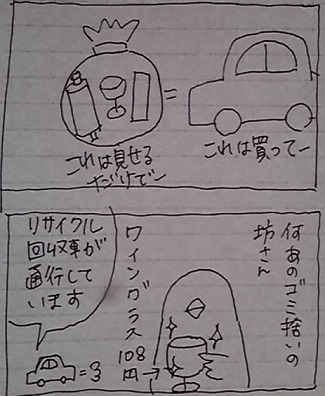 これは見せる
だけでー
これは買ってー
何あのゴミ捨いの
坊さん
ワイングラス
108
円→
リサイクル
回収車が
通行して
います